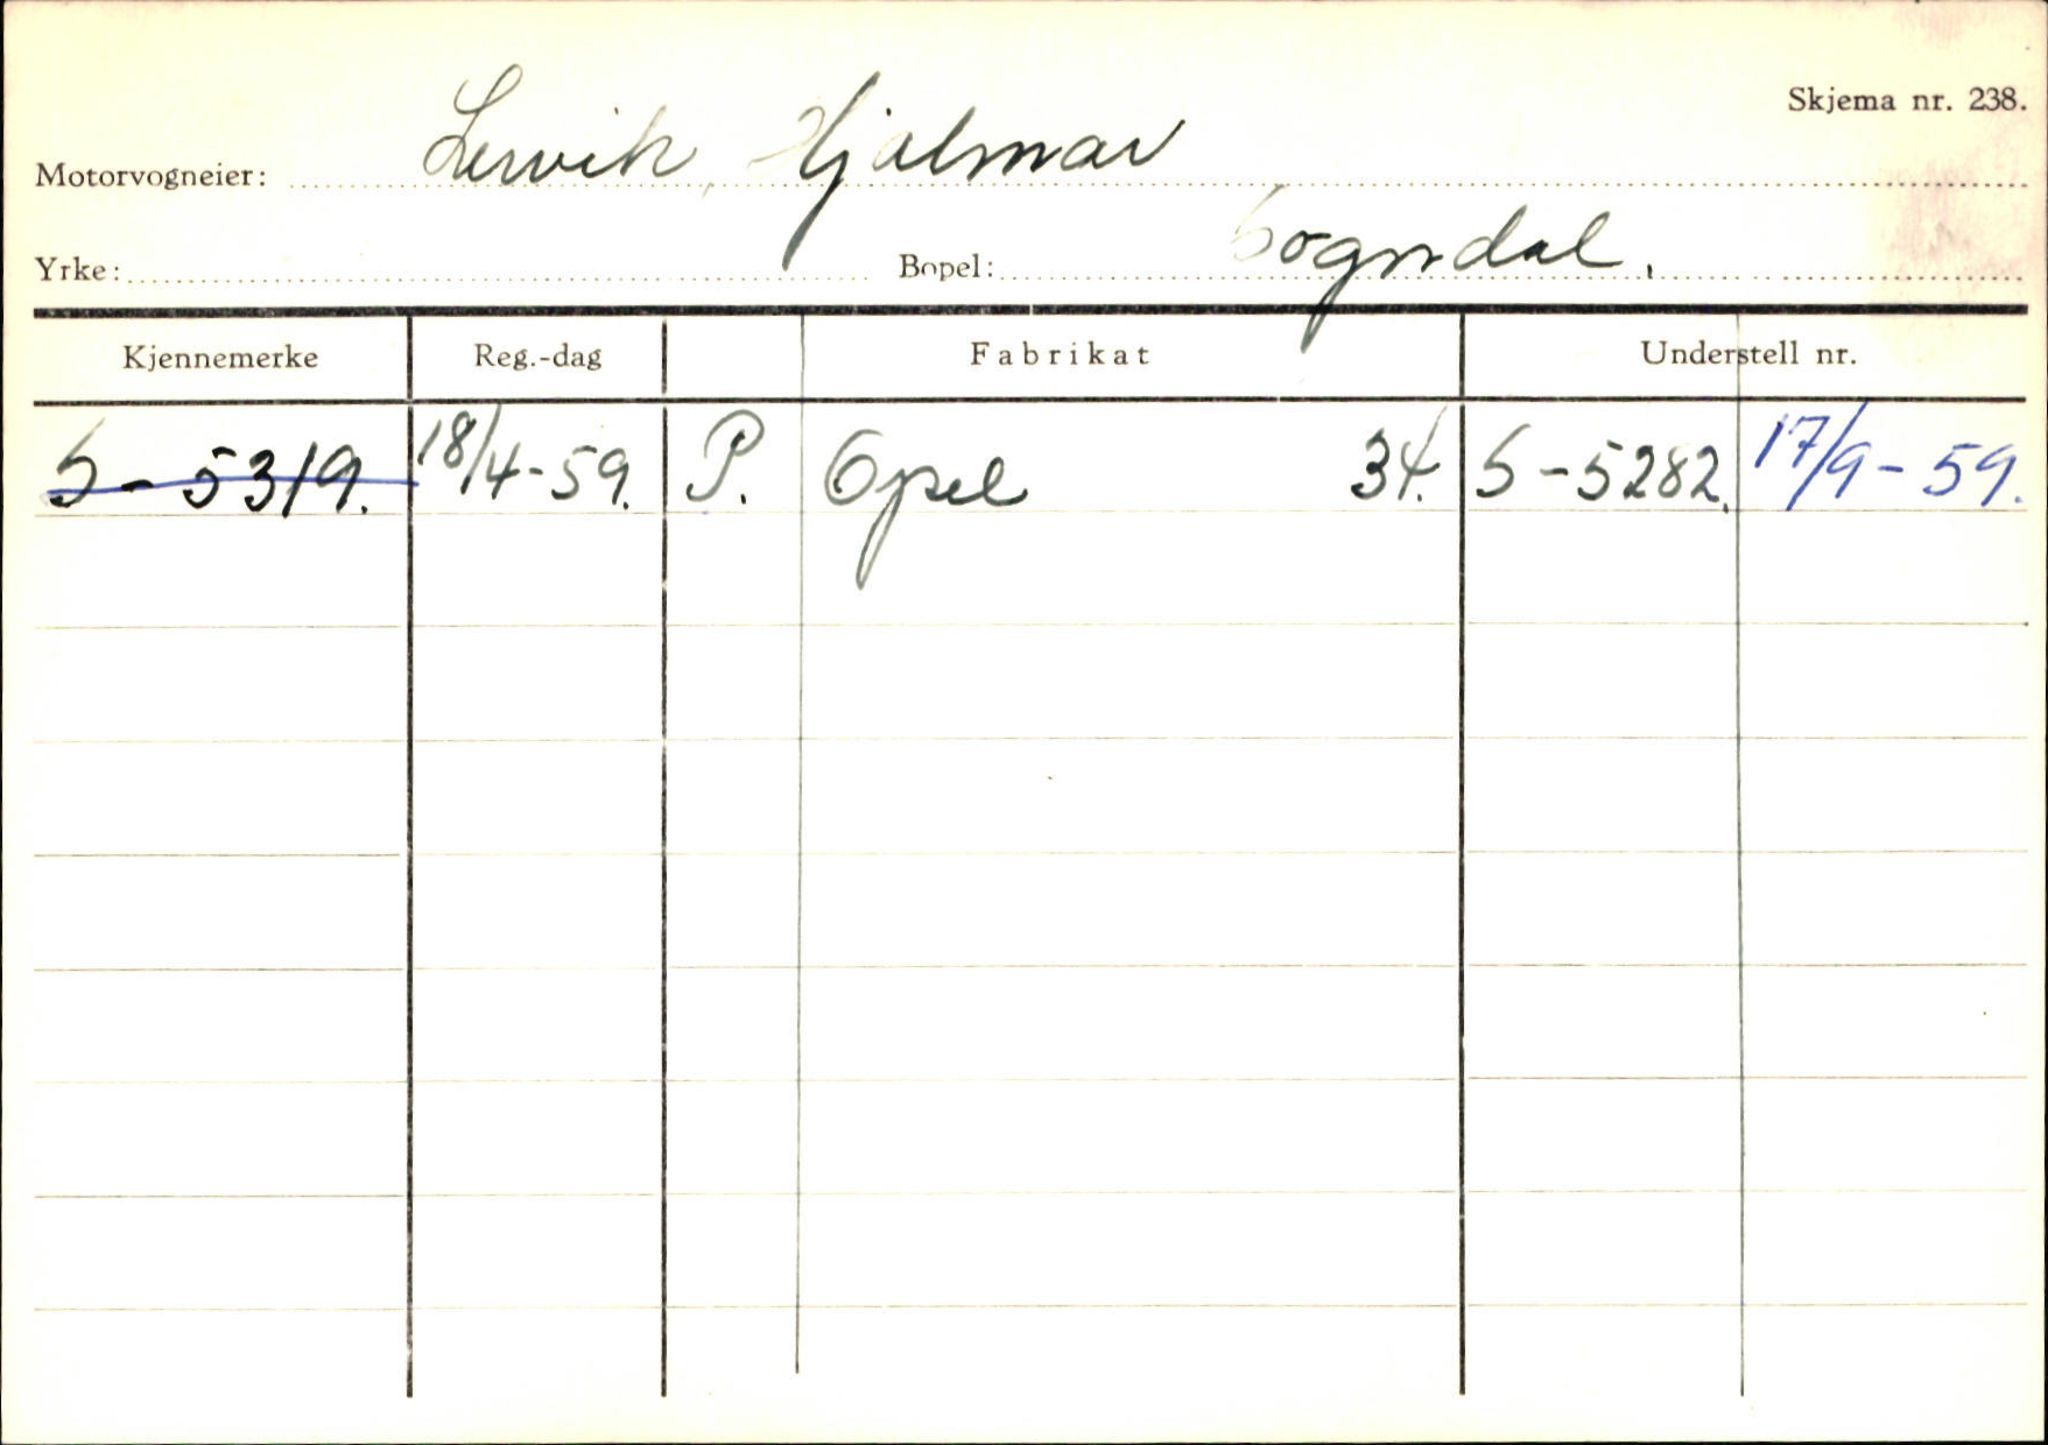 Skjema nr. 238.
Motorvogneier: Lervik, Hjalmar
Yrke: Bopel: Sogndal.
Kjennemerke Reg.-dag Fabrikat Understell nr.
S-5319. 18/4-59. P. Opel 34. S-5282. 17/9-59.